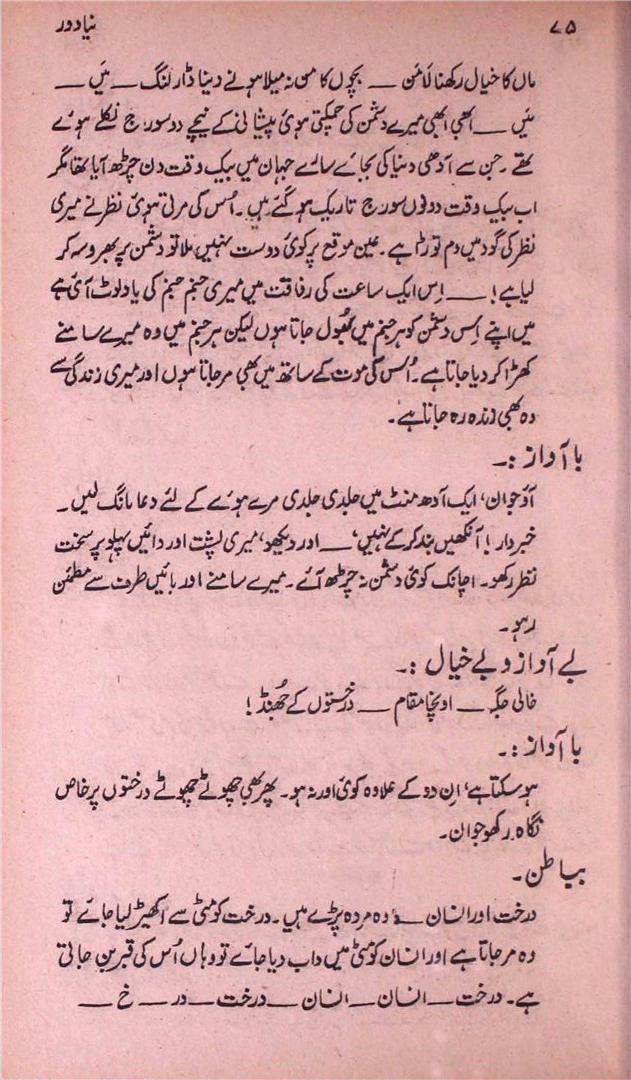 ۷۵ نیا دور
ماں کا خیال رکھنا لامن ـــ بچوں کا من نہ میلا ہونے دینا ڈارلنگ ـــ مَیں ـــ
مَیں ـــ ابھی ابھی میرے دشمن کی چمکتی ہوئی پیشانی کے نیچے دو سورج نکلے ہوئے
تھے۔ جن سے آدھی دنیا کی بجائے سارے جہان میں بیک وقت دن چڑھ آیا تھا مگر
اب بیک وقت دونوں سورج تاریک ہو گئے ہیں۔ اُس کی مرتی ہوئی نظر نے میری
نظر کی گود میں دم توڑا ہے۔ عین موقع پر کوئی دوست نہیں ملا تو دشمن پر بھروسہ کر
لیا ہے! ـــ اِس ایک ساعت کی رفاقت میں میری جنم جنم کی یاد لوٹ آئی ہے
میں اپنے اِس دشمن کو ہر جنم میں بھُول جاتا ہوں لیکن ہر جنم میں وہ میرے سامنے
کھڑا کر دیا جاتا ہے۔ اُس کی موت کے ساتھ میں بھی مر جاتا ہوں اور میری زندگی سے
وہ بھی زندہ رہ جاتا ہے۔
با آواز :۔
آؤ جوان، ایک آدھ منٹ میں جلدی جلدی مرے ہوئے کے لئے دعا مانگ لیں۔
خبردار! آنکھیں بند کر کے نہیں، ـــ اور دیکھو، میری پشت اور دائیں پہلو پر سخت
نظر رکھو۔ اچانک کوئی دشمن نہ چڑھ آئے۔ میرے سامنے اور بائیں طرف سے مطمئن
رہو۔
بے آواز و بے خیال :۔
خالی جگہ ـــ اونچا مقام ـــ درختوں کے جھُنڈ!
با آواز :۔
ہو سکتا ہے، اِن دو کے علاوہ کوئی اور نہ ہو۔ پھر بھی چھوٹے چھوٹے درختوں پر خاص
نگاہ رکھو جوان۔
بباطن۔
درخت اور انسان ـــ وہ مردہ پڑے ہیں۔ درخت کو مٹی سے اکھیڑ لیا جائے تو
وہ مر جاتا ہے اور انسان کو مٹی میں داب دیا جائے تو وہاں اُس کی قبر بن جاتی
ہے۔ درخت ـــ انسان ـــ انسان ـــ درخت ـــ در ـــ خ ـــ